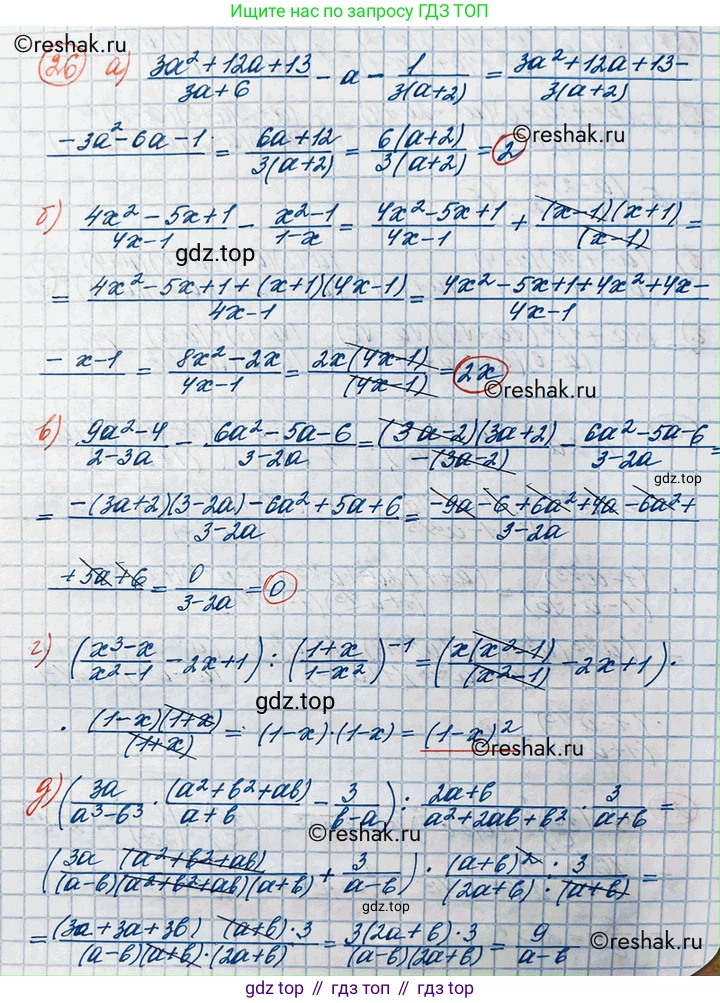 Ищите нас по запросу ГДЗ ТОП
©reshak.ru
26 а) (3a²+12a+13)/(3a+6) - a - 1/(3(a+2)) = (3a²+12a+13-)/(3(a+2))
(-3a²-6a-1)/ = (6a+12)/(3(a+2)) = (6(a+2))/(3(a+2)) = 2
©reshak.ru
б) (4x²-5x+1)/(4x-1) - (x²-1)/(1-x) = (4x²-5x+1)/(4x-1) + ((x-1)(x+1))/(x-1) =
gdz.top
= (4x²-5x+1+(x+1)(4x-1))/(4x-1) = (4x²-5x+1+4x²+4x-)/(4x-1)
(-x-1)/ = (8x²-2x)/(4x-1) = (2x(4x-1))/(4x-1) = 2x
©reshak.ru
в) (9a²-4)/(2-3a) - (6a²-5a-6)/(3-2a) = ((3a-2)(3a+2))/(-(3a-2)) - (6a²-5a-6)/(3-2a) =
gdz.top
= (-(3a+2)(3-2a)-6a²+5a+6)/(3-2a) = (-9a-6+6a²+4a-6a²+)/(3-2a)
(+5a+6)/ = 0/(3-2a) = 0
©reshak.ru
г) ((x³-x)/(x²-1) - 2x+1) : ((1+x)/(1-x²))⁻¹ = ((x(x²-1))/(x²-1) - 2x+1) ·
gdz.top
· ((1-x)(1+x))/(1+x) = (1-x)·(1-x) = (1-x)²
©reshak.ru
д) (3a/(a³-b³) · (a²+b²+ab)/(a+b) - 3/(b-a)) : (2a+b)/(a²+2ab+b²) · 3/(a+b) =
©reshak.ru
((3a (a²+b²+ab))/((a-b)(a²+b²+ab)(a+b)) + 3/(a-b)) · ((a+b)²·3)/((2a+b)·(a+b)) =
gdz.top
= ((3a+3a+3b) (a+b)·3)/((a-b)(a+b)·(2a+b)) = (3(2a+b)·3)/((a-b)(2a+b)) = 9/(a-b)
©reshak.ru
gdz.top // гдз.топ // gdz.top // гдз.топ // gdz.top